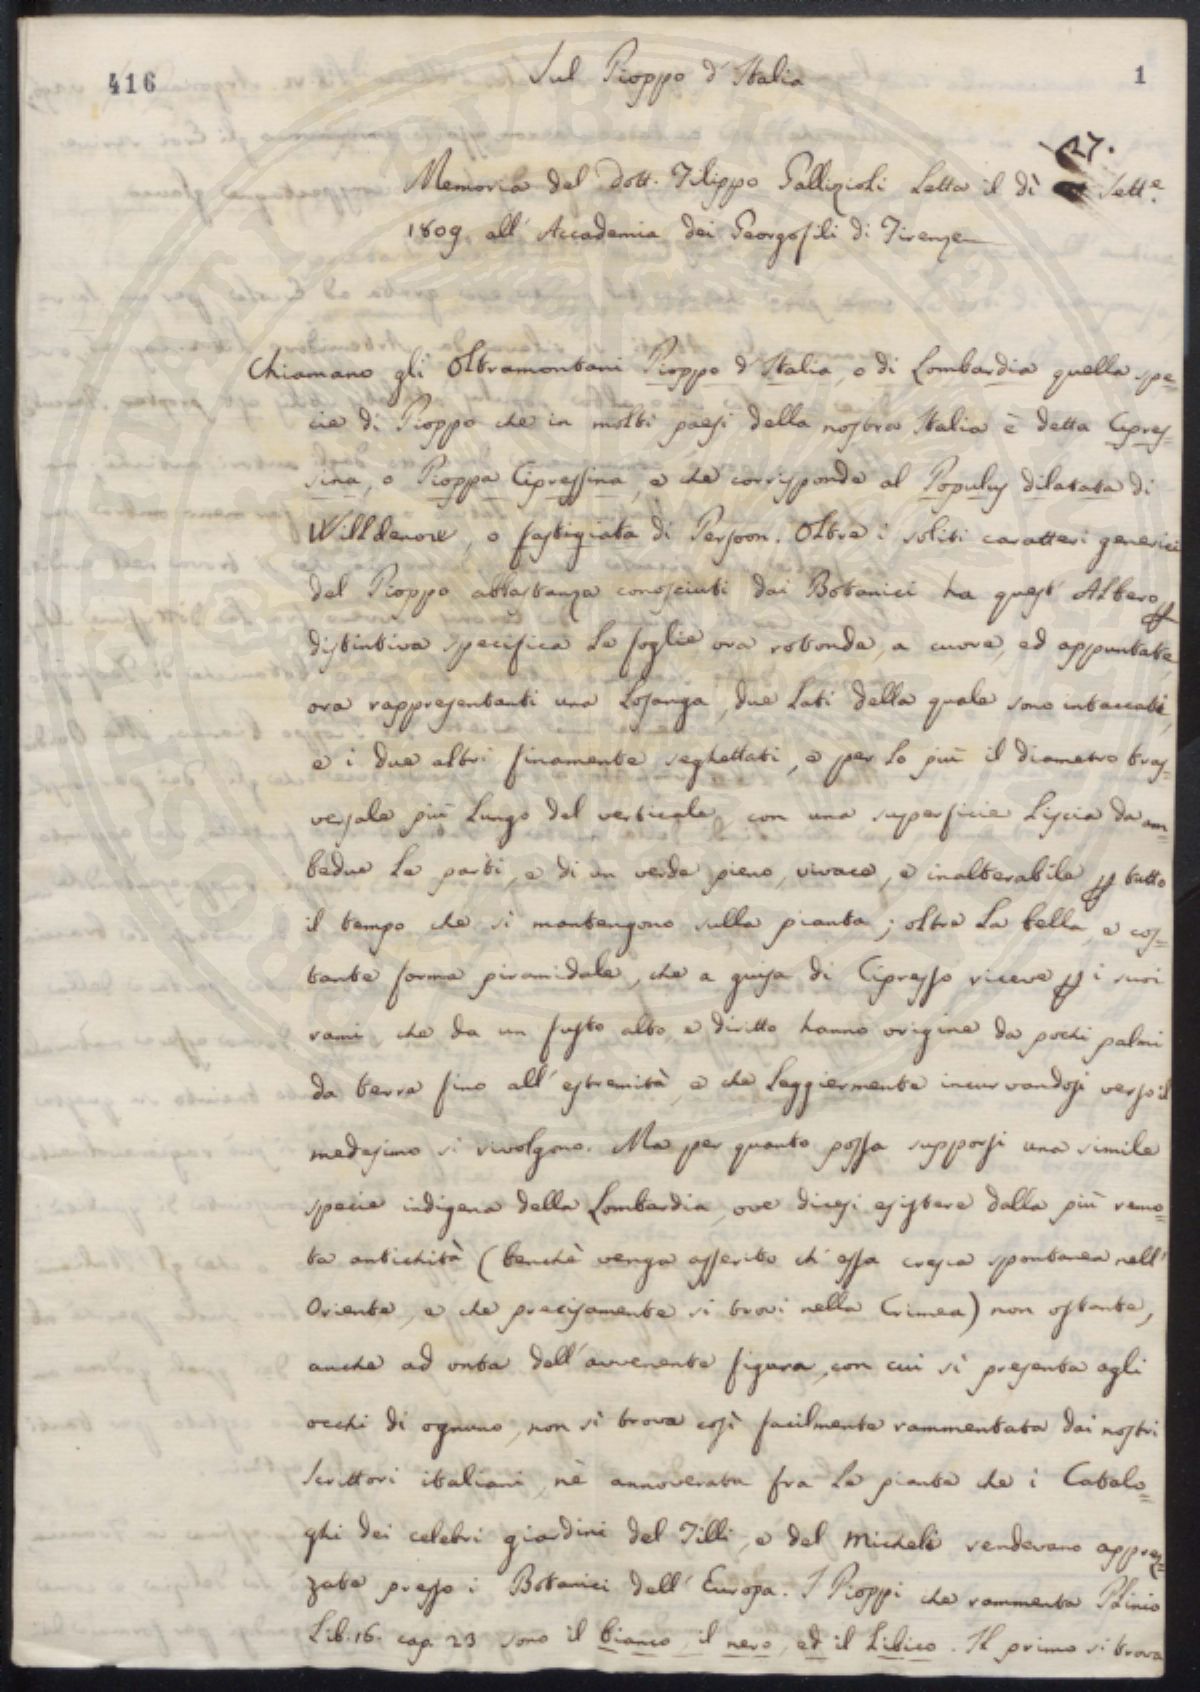 416
Sul Pioppo d'Italia
1
Memoria del Dott. Filippo Gallizioli Letta il dì 27. Sett.e
1809. all'Accademia dei Georgofili di Firenze
Chiamano gli Oltramontani Pioppo d'Italia, o di Lombardia quella spe=
cie di Pioppo che in molti paesi della nostra Italia è detta Cipres=
sina, o Pioppa Cipressina, e che corrisponde al Populus dilatata di
Willdenow, o fastigiata di Persoon. Oltre i soliti caratteri generici
del Pioppo abbastanza conosciuti dai Botanici ha quest'Albero p
distintiva specifica Le foglie ora rotonde, a cuore, ed appuntate,
ora rappresentanti una Losanga, due Lati della quale sono intaccati,
e i due altri finamente seghettati, e per Lo più il diametro tras=
versale più Lungo del verticale, con una superficie Liscia da am=
bedue Le parti, e di un verde pieno, vivace, e inalterabile p tutto
il tempo che si mantengono sulla pianta; oltre La bella, e cos=
tante forma piramidale, che a guisa di Cipresso riceve p i suoi
rami, che da un fusto alto, e diritto hanno origine da pochi palmi
da terra fino all'estremità, e che Leggiermente incurvandosi verso il
medesimo si rivolgono. Ma per quanto possa supporsi una simile
specie indigena della Lombardia, ove dicesi esistere dalla più remo=
ta antichità (benchè venga asserito ch'essa cresca spontanea nell'
Oriente, e che precisamente si trovi nella Crimea) non ostante,
anche ad onta dell'avvenente figura, con cui si presenta agli
occhi di ognuno, non si trova così facilmente rammentata dai nostri
Scrittori italiani, nè annoverata fra Le piante che i Catalo=
ghi dei celebri giardini del Tilli, e del Micheli rendevano apprez=
zate presso i Botanici dell'Europa. I Pioppi che rammenta Plinio
Lib. 16. cap. 23 sono il bianco, il nero, ed il Libico. Il primo si trova